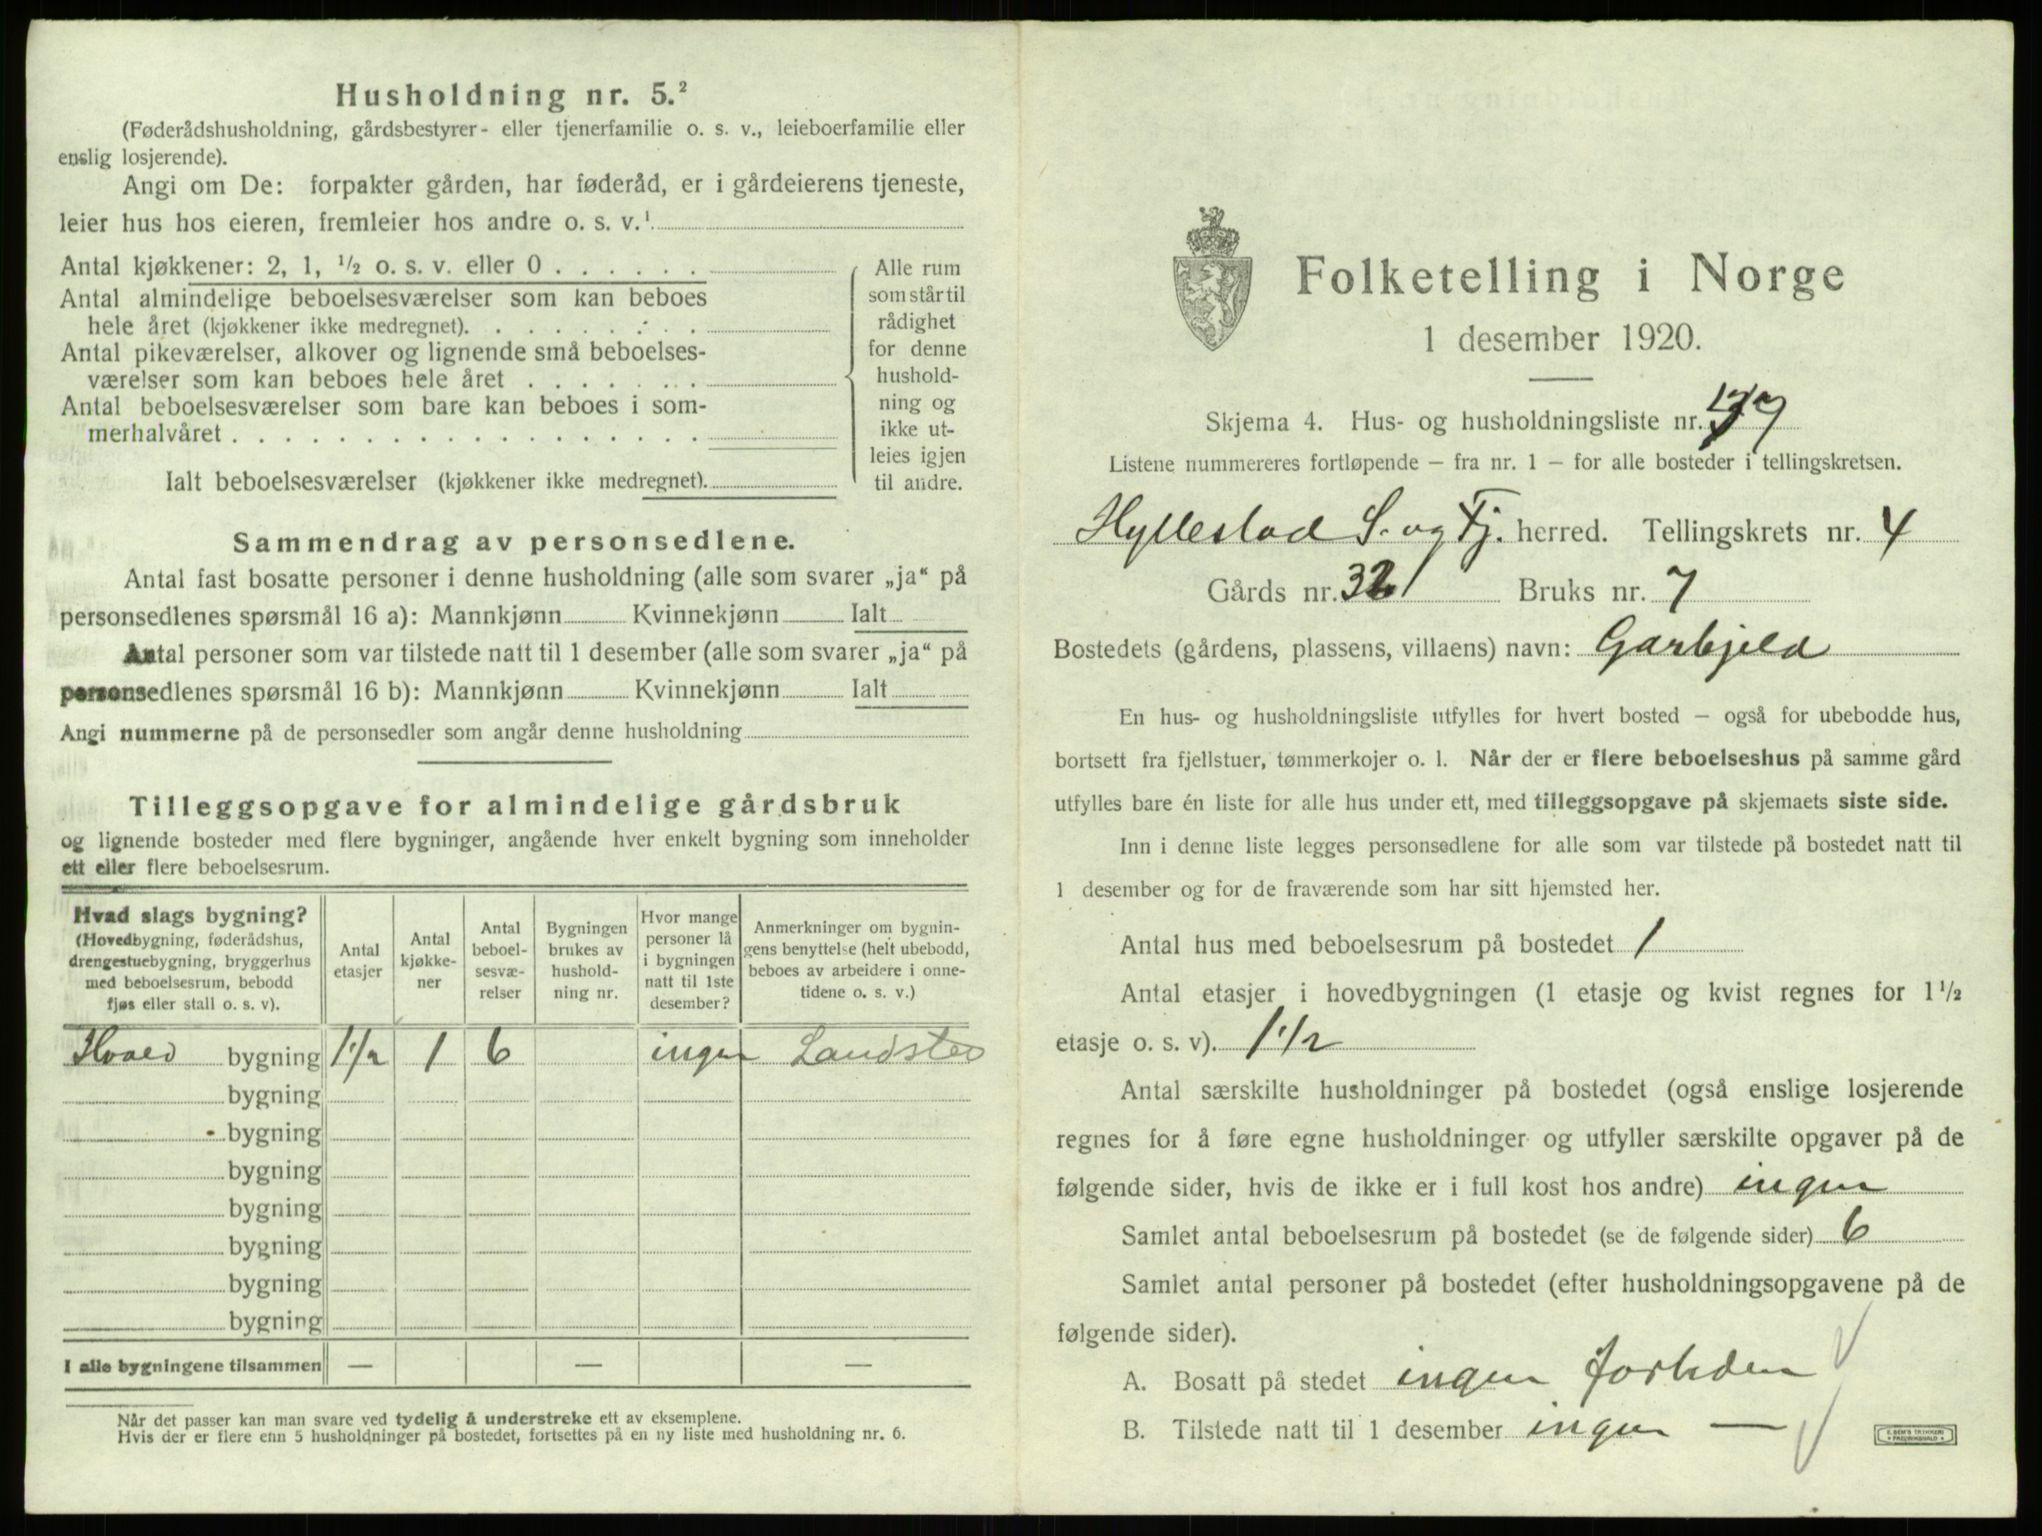 Husholdning nr. 5.²
(Føderådshusholdning, gårdsbestyrer- eller tjenerfamilie o. s. v., leieboerfamilie eller
enslig losjerende).
Angi om De: forpakter gården, har føderåd, er i gårdeierens tjeneste,
leier hus hos eieren, fremleier hos andre o. s. v.¹
Antal kjøkkener: 2, 1, ½ o. s. v. eller 0 . . . . . .
Antal almindelige beboelsesværelser som kan beboes
hele året (kjøkkener ikke medregnet). . . . . . . . .
Antal pikeværelser, alkover og lignende små beboelses-
værelser som kan beboes hele året . . . . . . .
Antal beboelsesværelser som bare kan beboes i som-
merhalvåret . . . . . . . . . . . . . . . . . .
Ialt beboelsesværelser (kjøkkener ikke medregnet).
Alle rum
som står til
rådighet
for denne
hushold-
ning og
ikke ut-
leies igjen
til andre.
Sammendrag av personsedlene.
Antal fast bosatte personer i denne husholdning (alle som svarer „ja“ på
personsedlenes spørsmål 16 a): Mannkjønn Kvinnekjønn Ialt
Antal personer som var tilstede natt til 1 desember (alle som svarer „ja“ på
personsedlenes spørsmål 16 b): Mannkjønn Kvinnekjønn Ialt
Angi nummerne på de personsedler som angår denne husholdning
Tilleggsopgave for almindelige gårdsbruk
og lignende bosteder med flere bygninger, angående hver enkelt bygning som inneholder
ett eller flere beboelsesrum.
Hvad slags bygning?
(Hovedbygning, føderådshus,
drengestuebygning, bryggerhus
med beboelsesrum, bebodd
fjøs eller stall o. s. v).
Antal
etasjer
Antal
kjøkke-
ner
Antal
beboel-
sesvæ-
relser
Bygningen
brukes av
hushold-
ning nr.
Hvor mange
personer lå
i bygningen
natt til 1ste
desember?
Anmerkninger om bygnin-
gens benyttelse (helt ubebodd,
beboes av arbeidere i onne-
tidene o. s. v.)
bygning 1½ 1 6 ingen Landsted
bygning
bygning
bygning
bygning
bygning
bygning
bygning
I alle bygningene tilsammen — — —
Når det passer kan man svare ved tydelig å understreke ett av eksemplene.
Hvis der er flere enn 5 husholdninger på bostedet, fortsettes på en ny liste med husholdning nr. 6.
Folketelling i Norge
1 desember 1920.
Skjema 4. Hus- og husholdningsliste nr.
Listene nummereres fortløpende – fra nr. 1 – for alle bosteder i tellingskretsen.
Hyllestad S. og Fj. herred. Tellingskrets nr. 4
Gårds nr. Bruks nr. 7
Bostedets (gårdens, plassens, villaens) navn:
En hus- og husholdningsliste utfylles for hvert bosted – også for ubebodde hus,
bortsett fra fjellstuer, tømmerkojer o. l. Når der er flere beboelseshus på samme gård
utfylles bare én liste for alle hus under ett, med tilleggsopgave på skjemaets siste side.
Inn i denne liste legges personsedlene for alle som var tilstede på bostedet natt til
1 desember og for de fraværende som har sitt hjemsted her.
Antal hus med beboelsesrum på bostedet 1
Antal etasjer i hovedbygningen (1 etasje og kvist regnes for 1½
etasje o. s. v). 1½
Antal særskilte husholdninger på bostedet (også enslige losjerende
regnes for å føre egne husholdninger og utfyller særskilte opgaver på de
følgende sider, hvis de ikke er i full kost hos andre) ingen
Samlet antal beboelsesrum på bostedet (se de følgende sider) 6
Samlet antal personer på bostedet (efter husholdningsopgavene på de
følgende sider).
A. Bosatt på stedet ingen
B. Tilstede natt til 1 desember ingen —